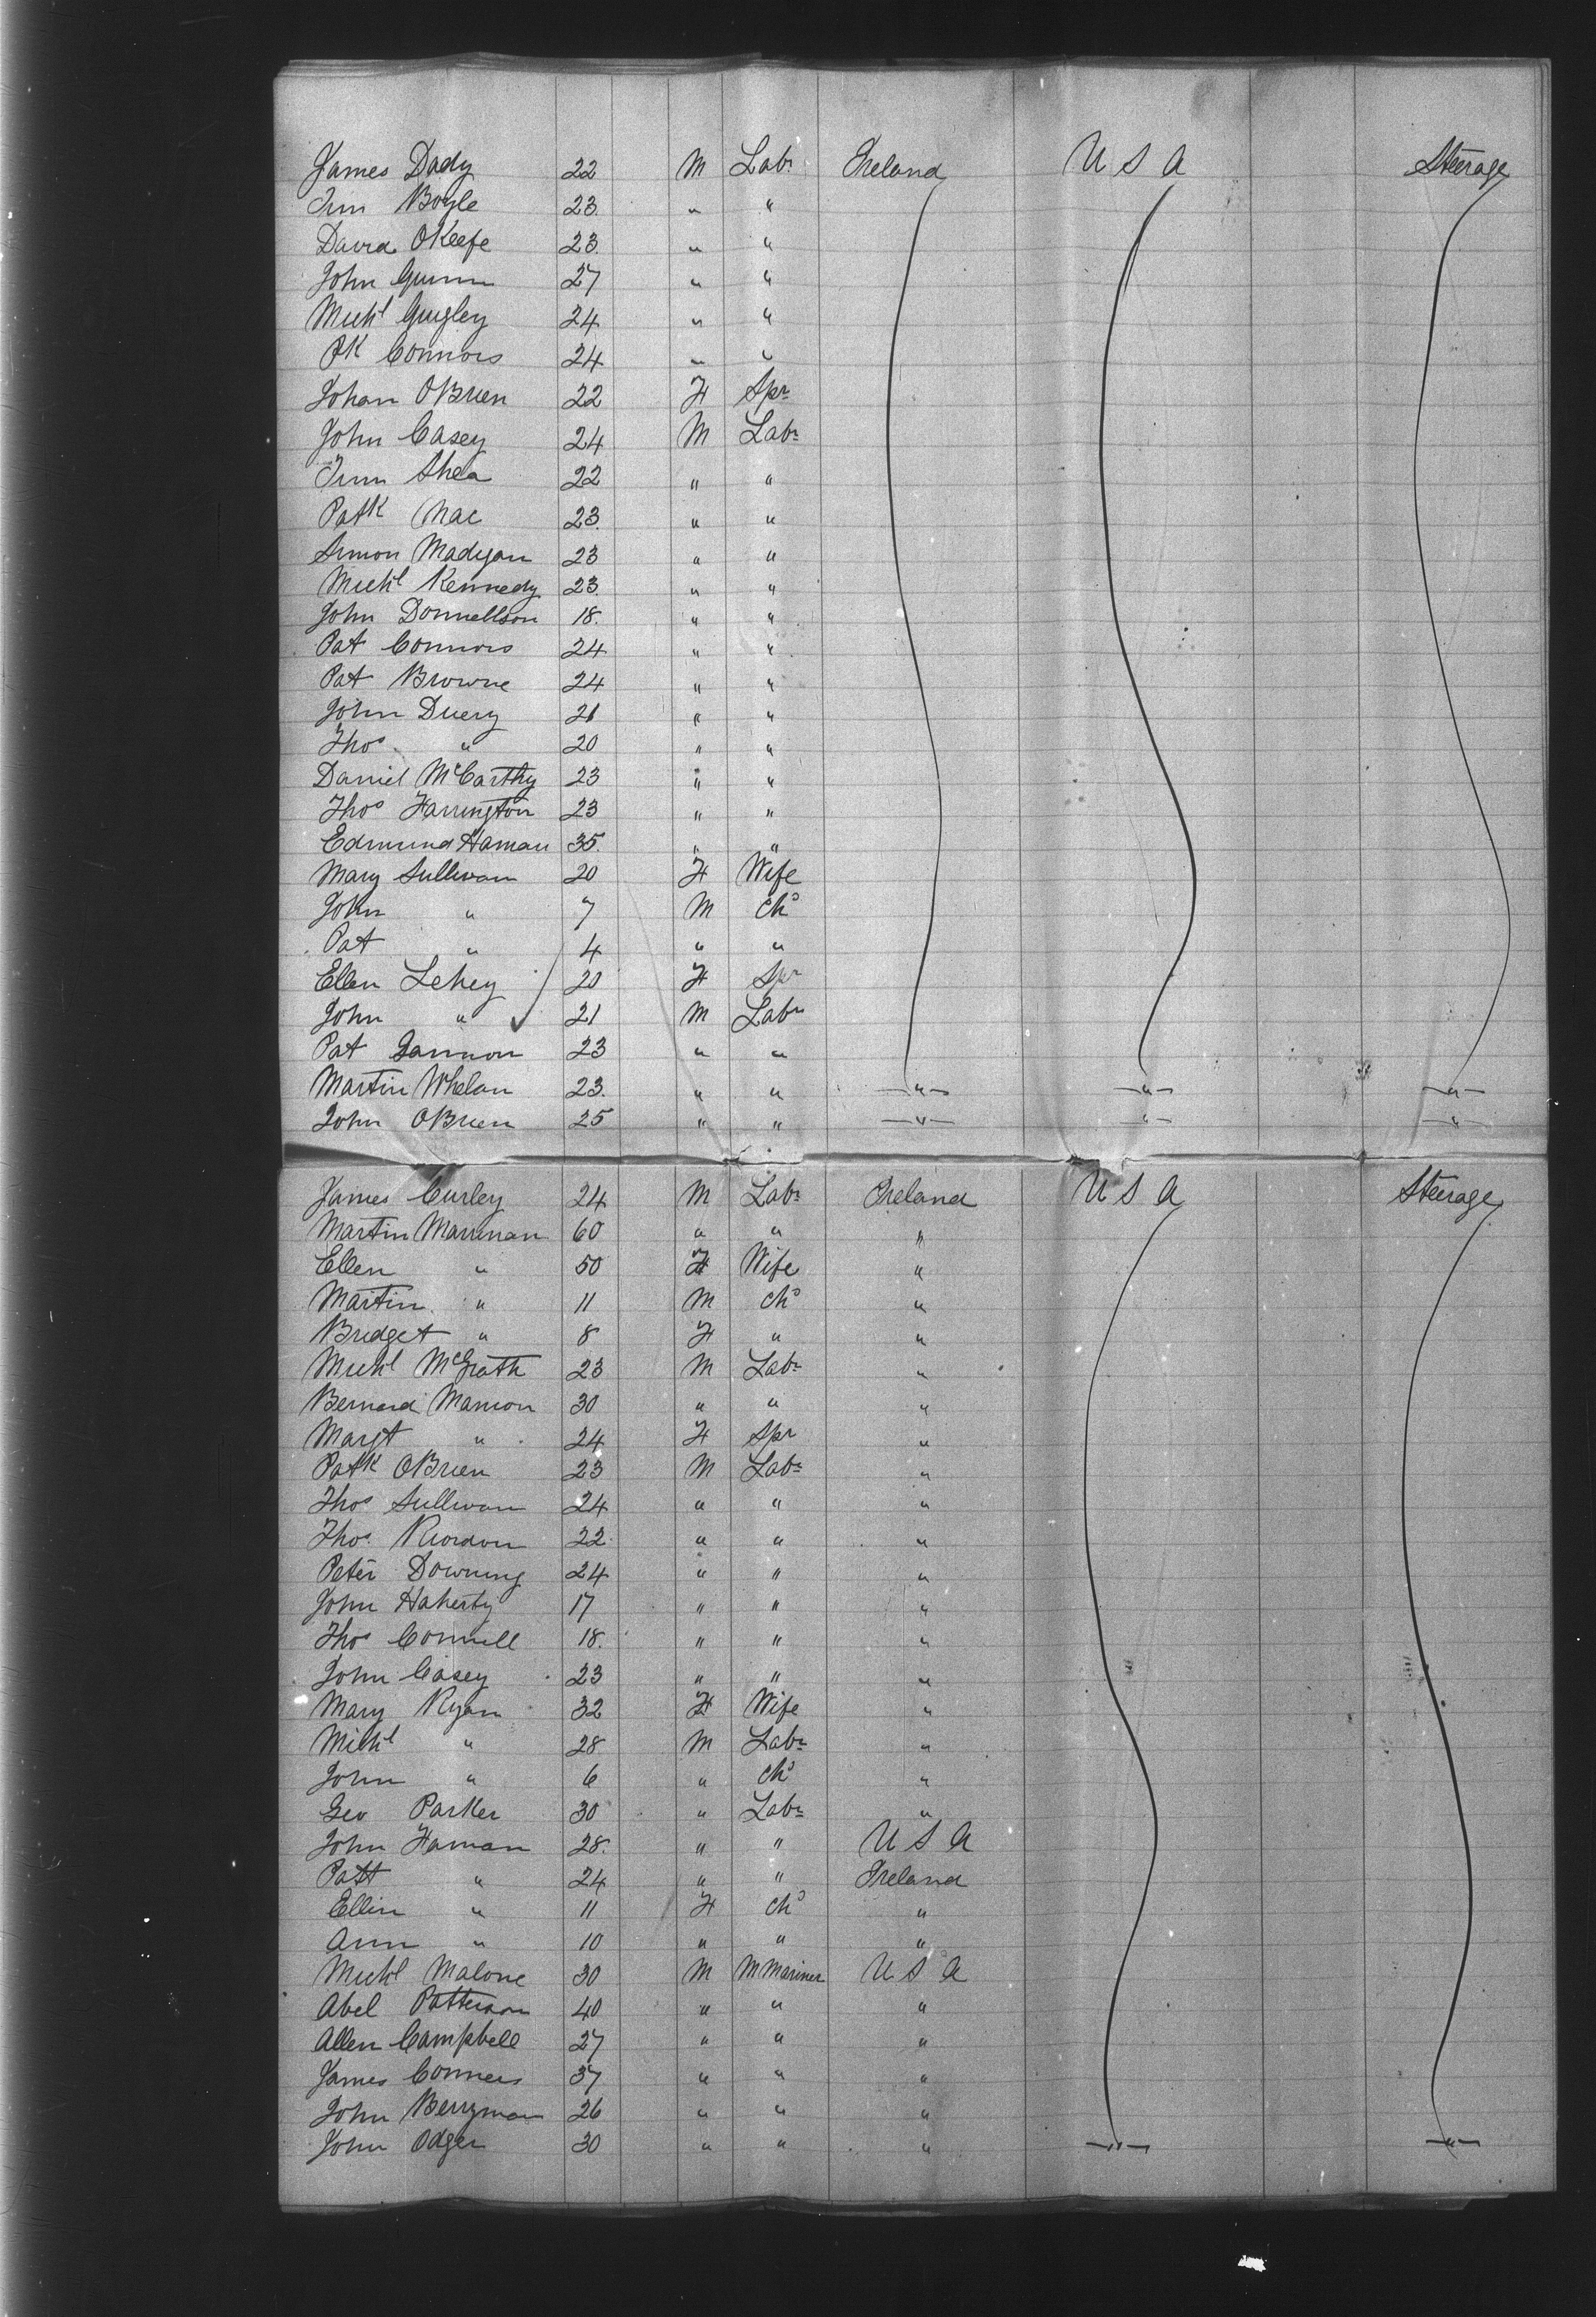 James Dady 22 M Labr Ireland U S A Steerage
Tim Boyle 23 " "
David OKeefe 23 " "
John Gunn 27 " "
Michl Quigley 24 " "
PK Connors 24 " "
Johan OBrien 22 F Spr
John Casey 24 M Labr
Tim Shea 22 " "
Patk Mac 23 " "
Simon Madigan 23 " "
Michl Kennedy 23 " "
John Donnellson 18 " "
Pat Connors 24 " "
Pat Browne 24 " "
John Duery 21 " "
Thos " 20 " "
Daniel McCarthy 23 " "
Thos Harrington 23 " "
Edmund Hanan 35 " "
Mary Sullivan 20 F Wife
John " 7 M Chd
Pat " 4 " "
Ellen Lehey 20 F Spr
John " 21 M Labr
Pat Gannon 23 " "
Martin Whelan 23 " " " " "
John OBrien 25 " " " " "
James Curley 24 M Labr Ireland U S A Steerage
Martin Marrinan 60 " " "
Ellen " 50 F Wife "
Martin " 11 M Chd "
Bridget " 8 F " "
Michl McGrath 23 M Labr "
Bernard Mannion 30 " " "
Margt " 24 F Spr "
Patk OBrien 23 M Labr "
Thos Sullivan 24 " " "
Thos Riordon 22 " " "
Peter Downing 24 " " "
John Haherty 17 " " "
Thos Connell 18 " " "
John Casey 23 " " "
Mary Ryan 32 F Wife "
Michl " 28 M Labr "
John " 6 " Chd "
Geo Parker 30 " Labr "
John Hanan 28 " " U S A
Patt " 24 " " Ireland
Ellin " 11 F Chd "
Ann " 10 " " "
Michl Malone 30 M M Mariner U S A
Abel Patterson 40 " " "
Allen Campbell 27 " " "
James Conners 37 " " "
John Berryman 26 " " "
John Odger 30 " " " " "